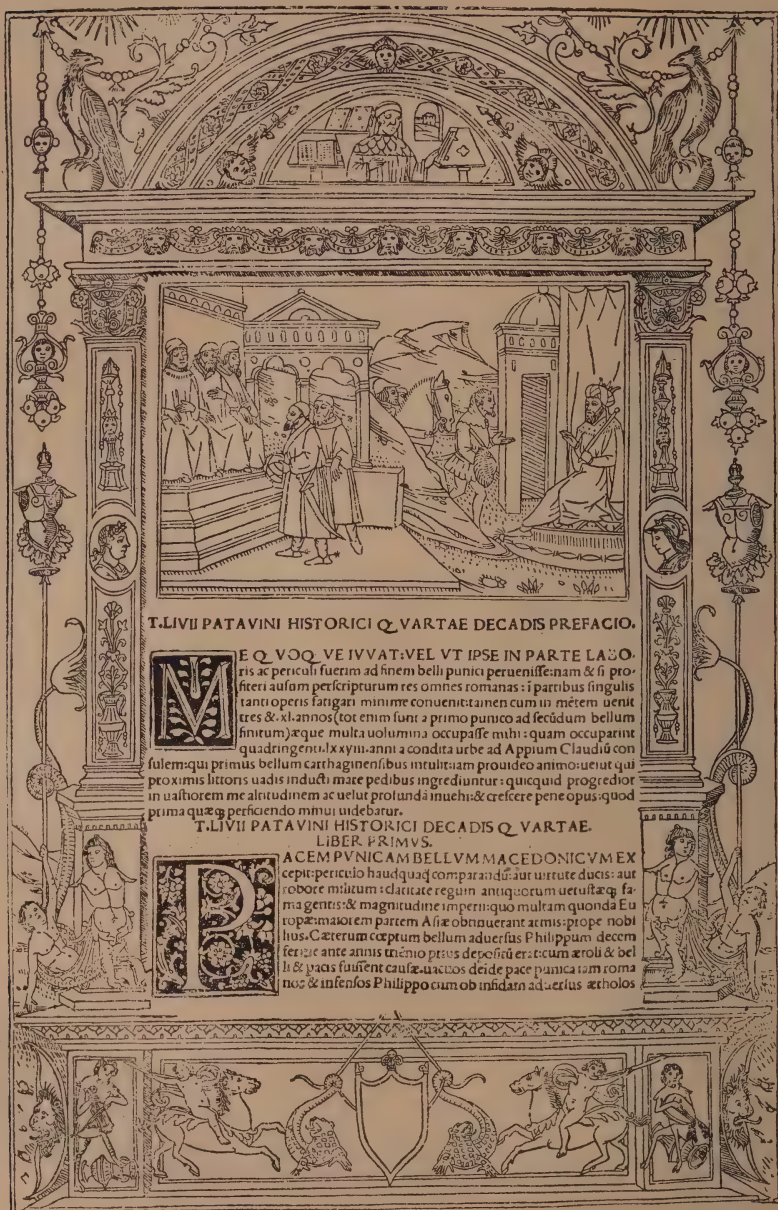 T.LIVII PATAVINI HISTORICI Q VARTAE DECADIS PREFACIO.
ME Q VOQ VE IVVAT:VEL VT IPSE IN PARTE LABO
ris ac periculi fuerim ad finem belli punici peruenisse:nam & si pro
fiteri ausum perscripturum res omnes romanas : i partibus singulis
tanti operis fatigari minime conuenit:tamen cum in mētem uenit
tres &.xl.annos (tot enim sunt a primo punico ad secūdum bellum
finitum)æque multa uolumina occupasse mihi : quam occuparint
quadringenti.lxxviii.anni a condita urbe ad Appium Claudiū con
sulem:qui primus bellum carthaginensibus intulit:iam prouideo animo:uelut qui
proximis littoris uadis inducti mare pedibus ingrediuntur : quicquid progredior
in uastiorem me altitudinem ac uelut profundā inuehi:& crescere pene opus:quod
prima quæq; perficiendo minui uidebatur.
T.LIVII PATAVINI HISTORICI DECADIS Q VARTAE.
LIBER PRIMVS.
PACEM PVNICAM BELLVM MACEDONICVM EX
cepit:periculo haudquaq̄ comparandū:aut uirtute ducis: aut
robore militum : claritate regum antiquorum uetustaq; fa
ma gentis:& magnitudine imperii:quo multam quondā Eu
ropæ:maiorem partem Asiæ obtinuerant armis:prope nobi
lius. Cæterum cœptum bellum aduersus Philippum decem
ferme ante annis triēnio prius depositū erat:cum ætoli & bel
li & pacis fuissent causæ.uacuos deide pace punica iam roma
nos & infensos Philippo cum ob infidam aduersus ætholos